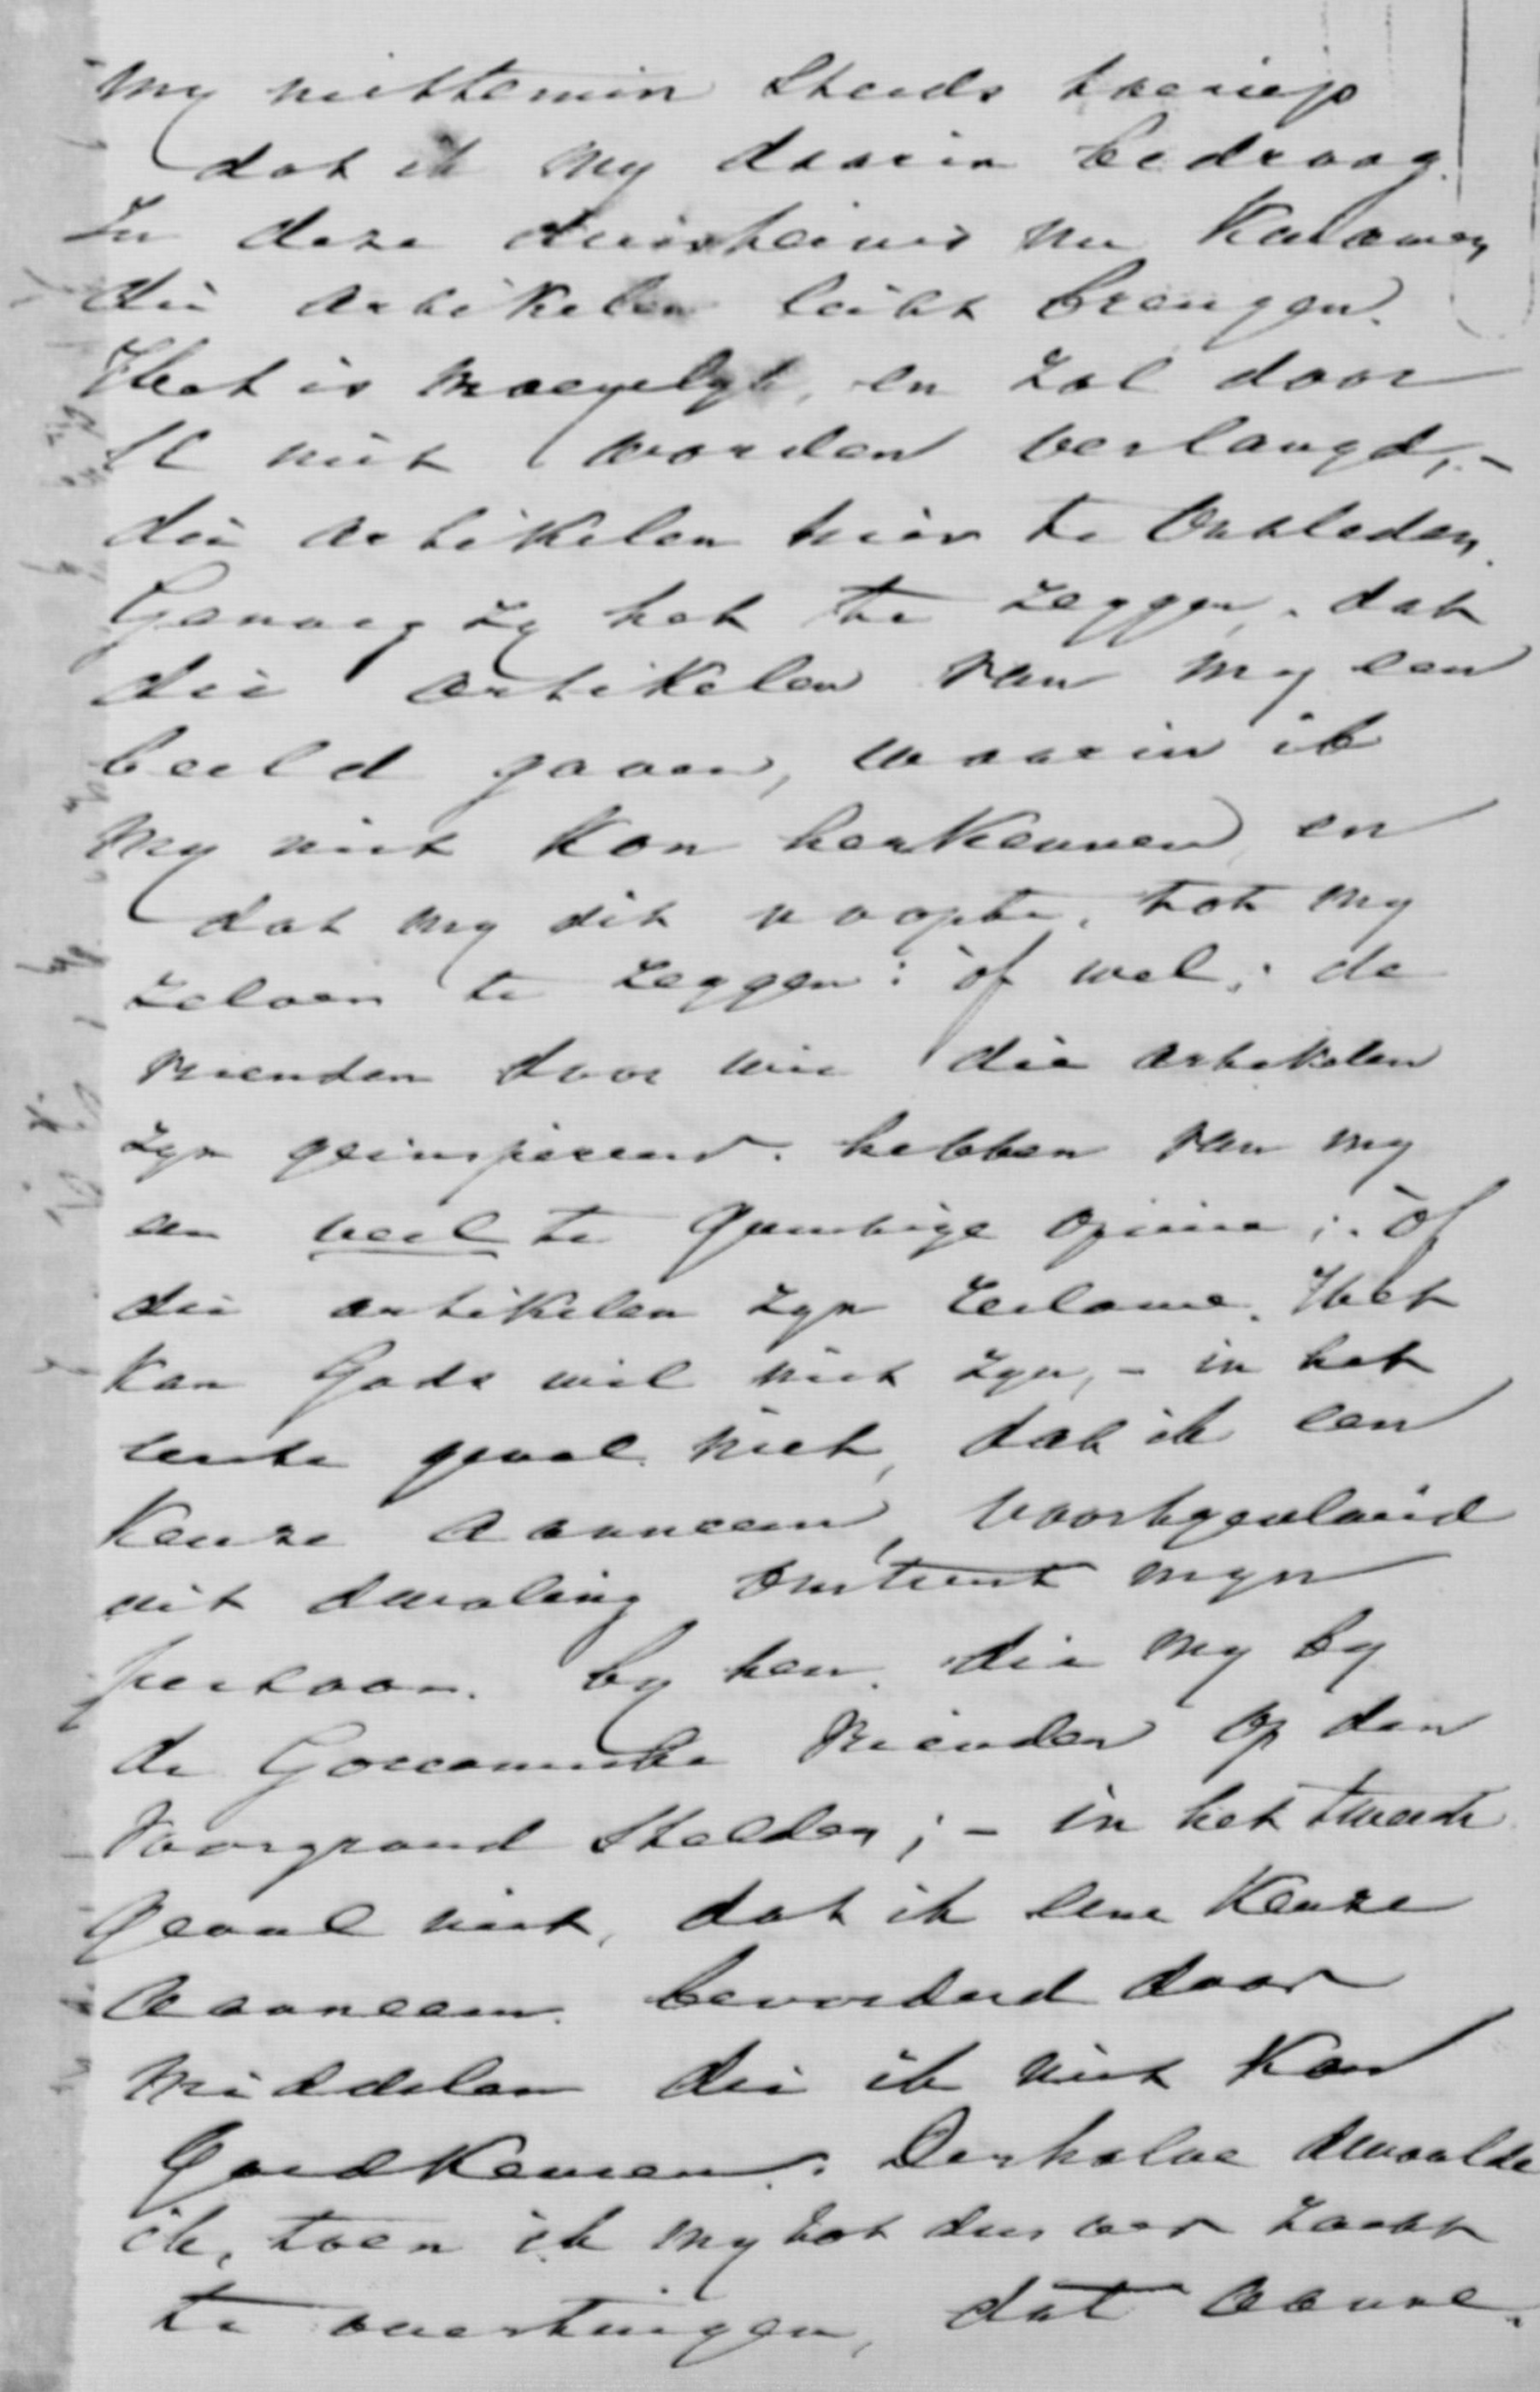 my niettemin steeds toeriep
dat ik my daarin bedroog.
In deze duisternis nu kwamen
die artikelen licht brengen.
Het is moeyelyk, en zal door
U niet worden verlangd, -
die artikelen hier te ontleden.
Genoeg zy het te zeggen, dat
die artikelen van my een
beeld gaven, waarin ik
my niet kon herkennen, en
dat my dit noopte, tot my
zelven te zeggen: òf wel: de
vrienden door wie die artikelen
zyn geinspireerd hebben van my
een veel te gunstige opinie; òf
die artikelen zyn reclame. Het
kan Gods wil niet zyn, - in het
eerste geval niet, dat ik een
keuze aanneem, voortgevloeid
uit dwaling omtrent myn
persoon by hen die my by
de Goessche vrienden op den
voorgrond stelden; - in het tweede
geval niet, dat ik eene keuze
aanneem bevorderd door
middelen die ik niet kan
goedkeuren. Derhalve dwaalde
ik, toen ik my tot dusver zocht
te overtuigen, dat aanne-